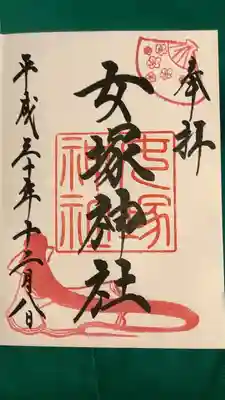 奉拝
女塚神社
女塚神社
平成三十年十二月八日